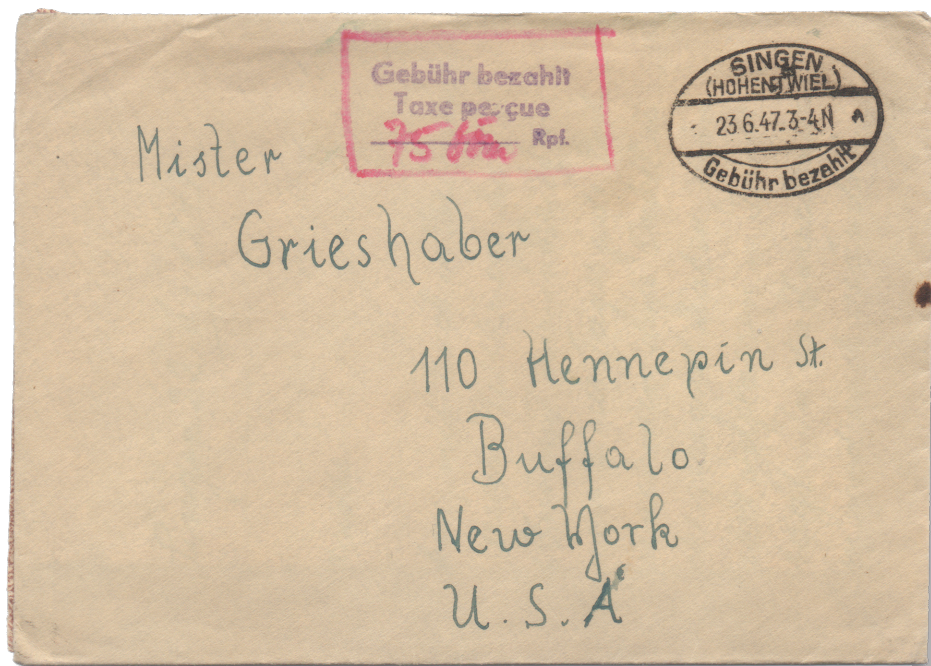 Gebühr bezahlt
Taxe perçue
75 Rpf.
SINGEN
(HOHENTWIEL)
23.6.47.3-4N
Gebühr bezahlt
Mister
Grieshaber
110 Hennepin St.
Buffalo
New York
U.S.A